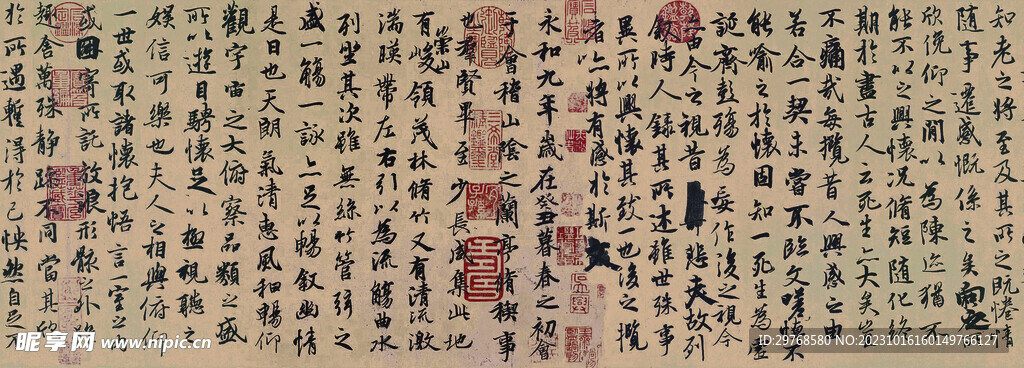 知老之將至及其所之既惓情
隨事遷感慨係之矣向之
欣俛仰之閒以為陳迹猶不
能不以之興懷況脩短隨化終
期於盡古人云死生亦大矣豈
不痛哉每攬昔人興感之由
若合一契未嘗不臨文嗟悼不
能喻之於懷固知一死生為虛
誕齊彭殤為妄作後之視今
亦由今之視昔悲夫故列
敘時人錄其所述雖世殊事
異所以興懷其致一也後之攬
者亦將有感於斯文
永和九年歲在癸丑暮春之初會
于會稽山陰之蘭亭脩稧事
也羣賢畢至少長咸集此地
有崇山峻領茂林脩竹又有清流激
湍暎帶左右引以為流觴曲水
列坐其次雖無絲竹管弦之
盛一觴一詠亦足以暢敘幽情
是日也天朗氣清惠風和暢仰
觀宇宙之大俯察品類之盛
所以遊目騁懷足以極視聽之
娛信可樂也夫人之相與俯仰
一世或取諸懷抱悟言一室之內
或因寄所託放浪形骸之外雖
趣舍萬殊静躁不同當其欣
於所遇蹔得於己怏然自足不
昵享网 www.nipic.cn
ID:29768580 NO:20231016160149766127